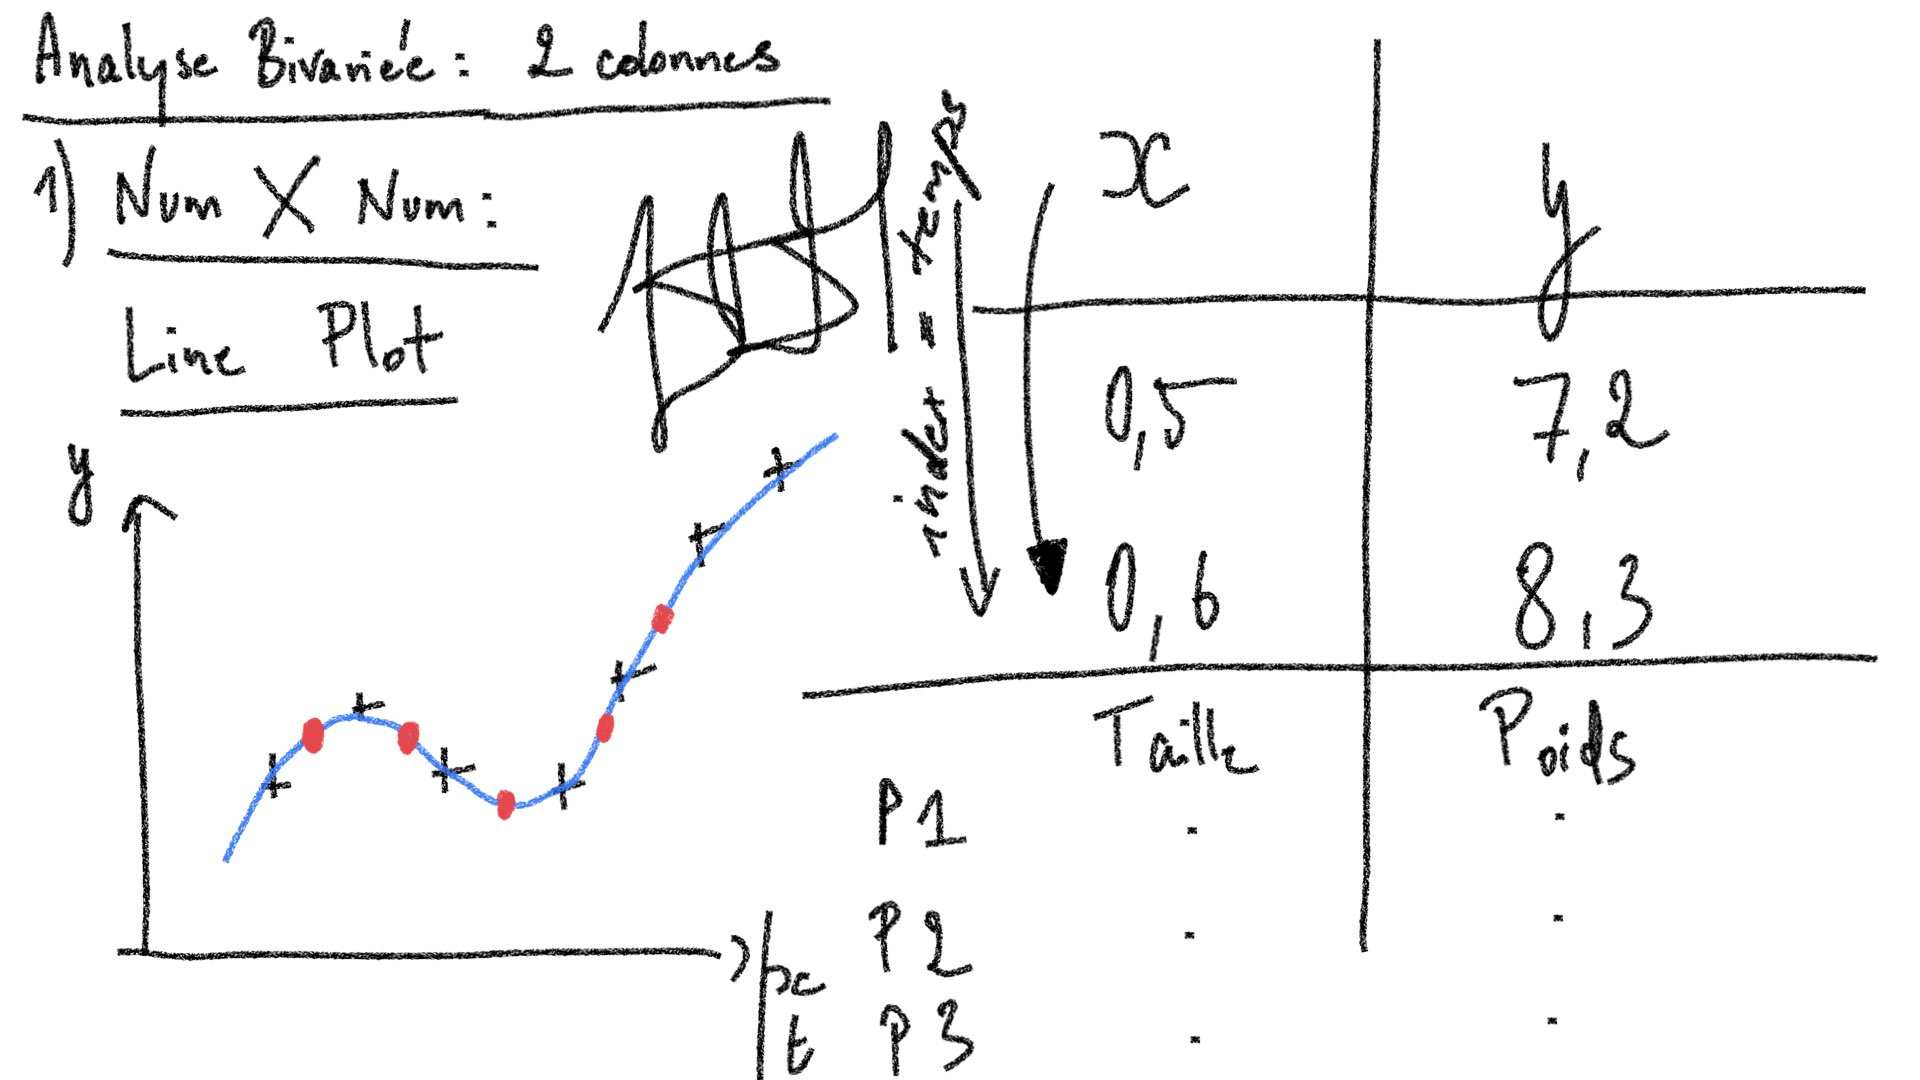 Analyse Bivariée : 2 colonnes
1) Num X Num :
Line Plot
y
x
t
index = temps
x y
0,5 7,2
0,6 8,3
Taille Poids
P1 . .
P2 . .
P3 . .